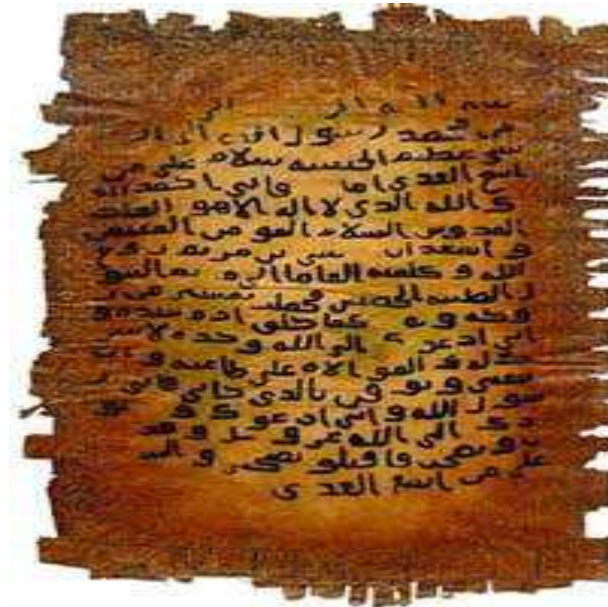 من محمد رسول الله
شي عظيم الحبشة سلام على من
اتبع الهدى اما فاني احمد
الله الذي لا اله الا هو الملك
القدوس السلام المومن المهيمن
و اشهد ان بن مريم روح
الله و كلمته القاها الى مريم البتو
ل الطيبة فحملت من ر
وحه و كما خلق ادم بيده و
اني ادعوك الى الله وحده لا شر
يك له و الموالاه على طاعته و ان
بالذي جاني فاني ر
سول الله و اني ادعوك و جنو
دك الى الله عز و جل و قد
و نصحت فاقبلو نصيحتي و السلا
على من اتبع الهدى